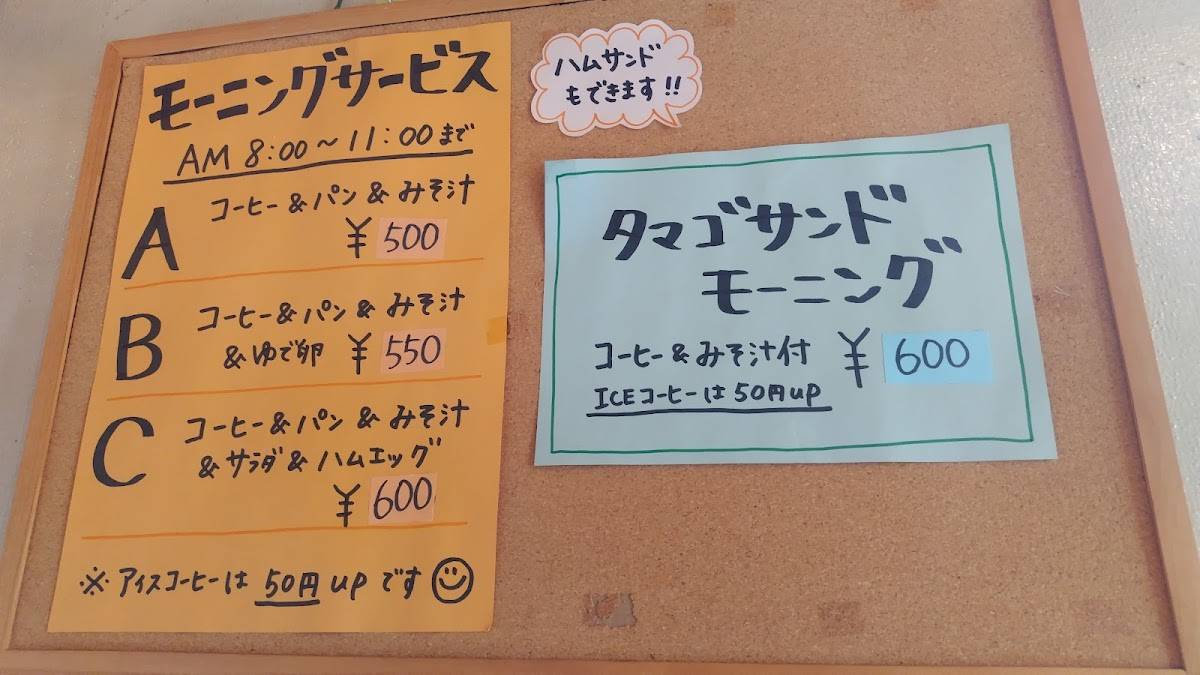 モーニングサービス
AM 8:00~11:00まで
A
コーヒー&パン&みそ汁
¥500
B
コーヒー&パン&みそ汁
&ゆで卵 ¥550
C
コーヒー&パン&みそ汁
&サラダ&ハムエッグ
¥600
※アイスコーヒーは50円upです
ハムサンド
もできます!!
タマゴサンド
モーニング
コーヒー&みそ汁付 ¥600
ICEコーヒーは50円up